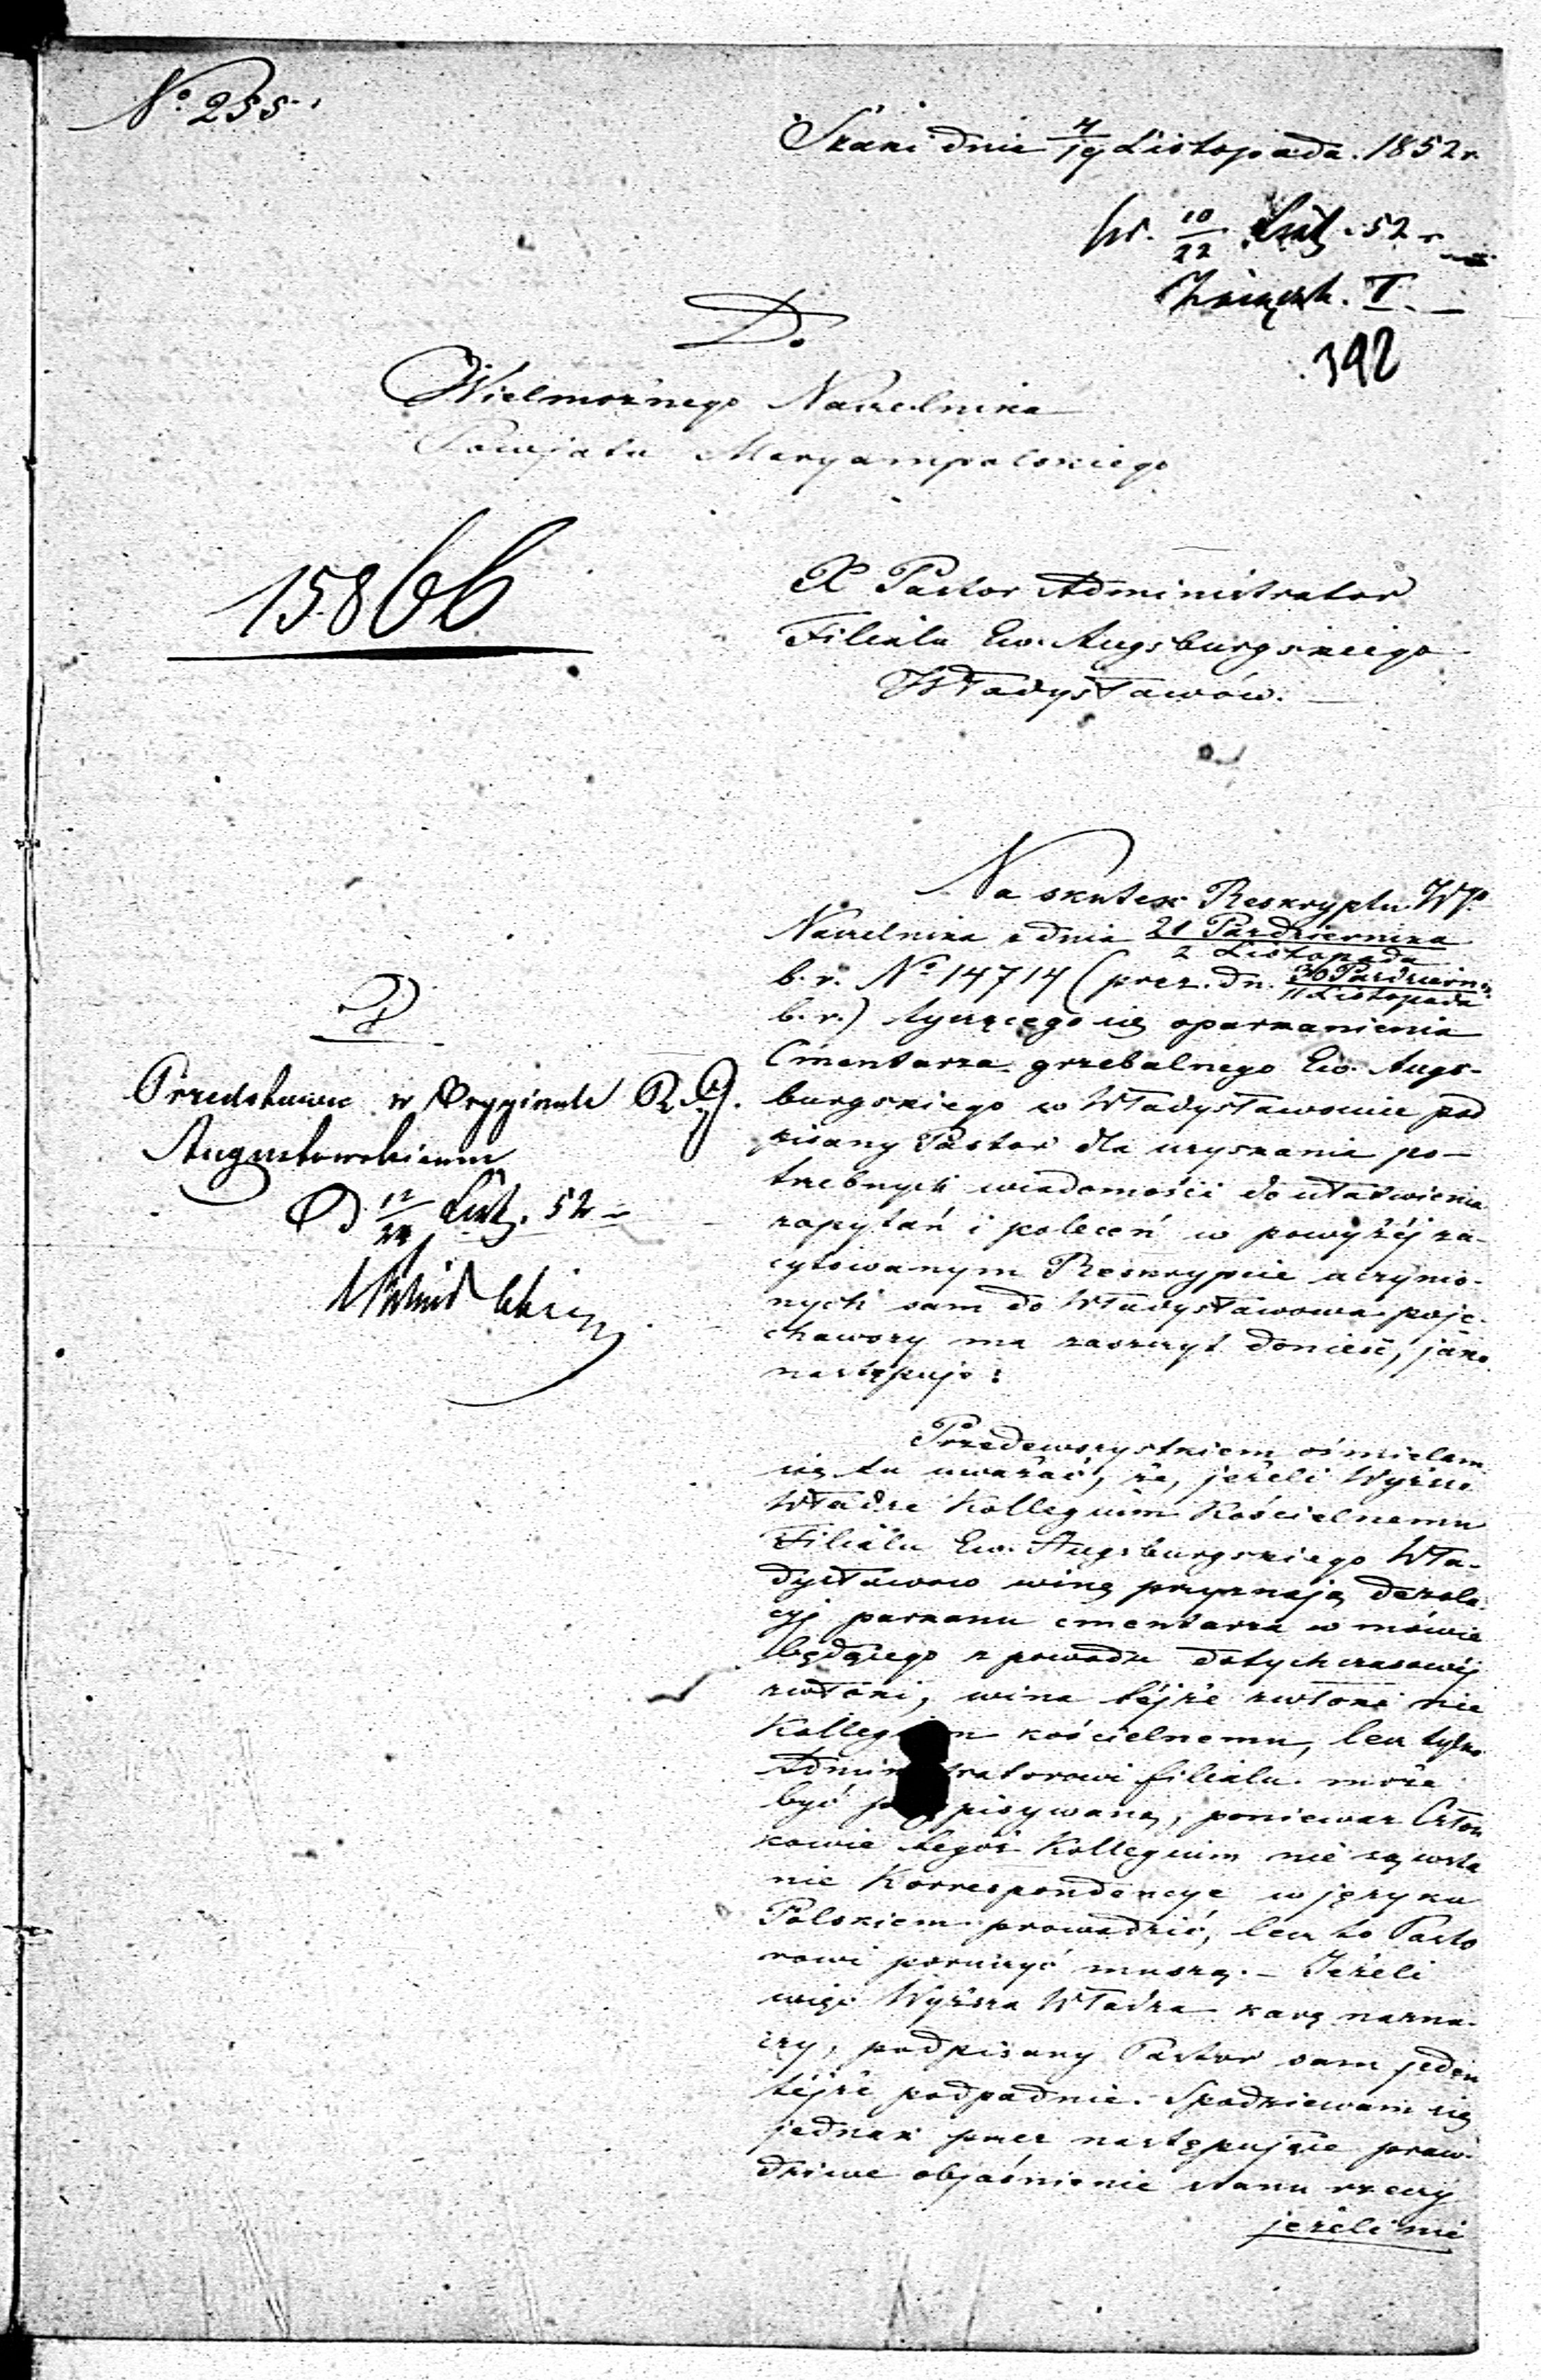 No 255.
Szaki dnia 7/19 Listopada. 1852 r.
pr. 10/22 List. 52 r.
T.
392
D.
Wielmożnego Naczelnika
Powjatu Maryampolskiego
15866
X Pastor Administrator
Filiału Ew. Augsburgskiego
Władysławów. —
Na skutek Reskryptu WJo
Naczelnika z dnia 21 Października / 2 Listopada
b. r. No 14714 (prez. dn. 30 Paździer. / 11 Listopada
b. r.) tyczącego się oparkanienia
Cmentarza grzebalnego Ew. Augs-
burgskiego w Władysławowie pod
pisany Pastor dla uzyskania po-
trzebnych wiadomości do ułatwienia
zapytań i poleceń w powyżéj za-
cytowanym Reskrypcie uczynio-
nych sam do Władysławowa poje-
chawszy ma zaszczyt donieść, jako
następuje:
Przedewszystkiem ośmielam
się tu uważać, że, jeżeli Wyższe
Władze Kollegium Kościelnemu
Filiału Ew. Augsburgskiego Wła-
dysławow winę przyznają dezola-
cyj parkanu cmentarza w mowie
będącego z powodu dotychczasowéj
zwłoki, wina téjże zwłoki nie
Kolleg n kościelnemu, lecz tylko
Admin tratorowi filiału może
być pisywaną, poniewaz Człon
kowie tegoż Kollegium nie są wsta
nie Korrespondencye w języku
Polskiem prowadzić, lecz to Pasto
rowi poruczyć muszą. — Jeżeli
więc Wyższa Władza karę nazna-
czy, podpisany Pastor sam jeden
téjże podpadnie. Spodziewam się
jednak przez następujące praw-
dziwe objaśnienie stanu rzeczy
jeżeli nie
Przedstawić w Oryginale R. G.
Augustowskiemu
D 12/24 List. 52 r